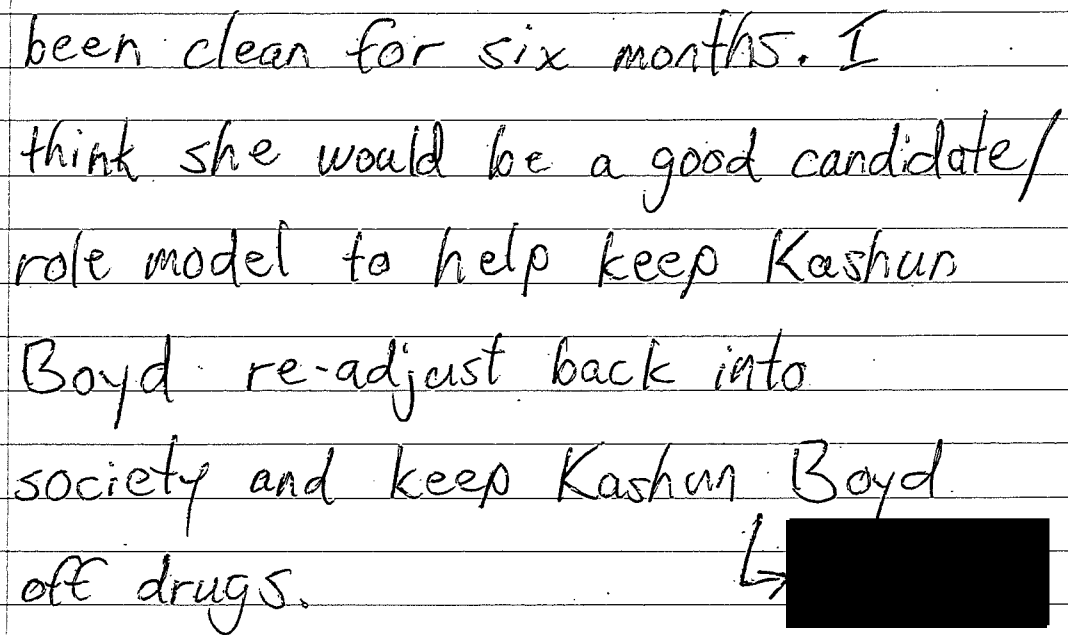 been clean for six months. I
think she would be a good candidate/
role model to help keep Kashun
Boyd re-adjust back into
society and keep Kashun Boyd
off drugs.